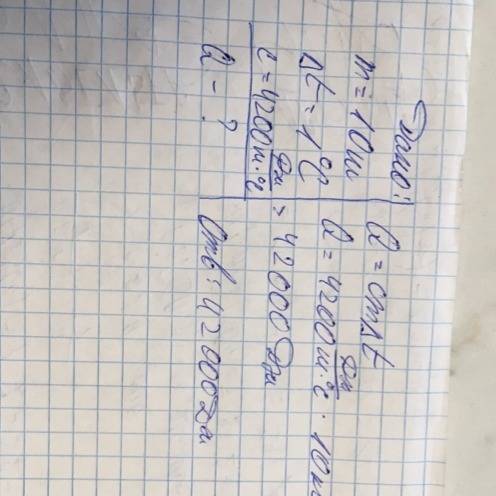 Дано:
m = 10 кг
Δt = 1 °C
c = 4200 Дж/кг·°C
Q - ?
Q = cmΔt
Q = 4200 Дж/кг·°C · 10 кг
= 42000 Дж
Отв: 42000 Дж